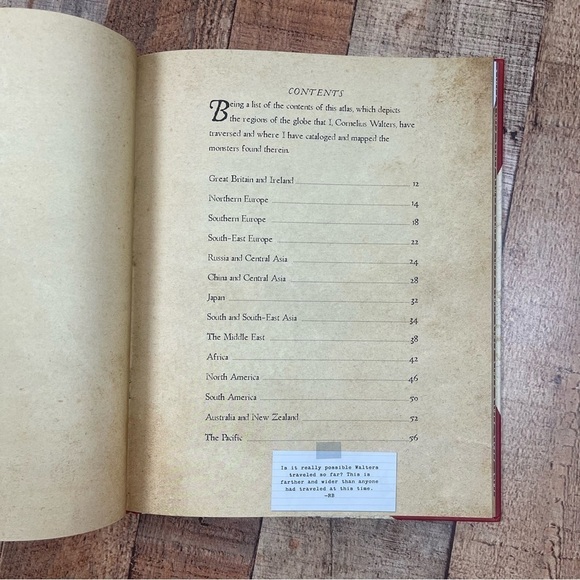 CONTENTS
Being a list of the contents of this atlas, which depicts
the regions of the globe that I, Cornelius Walters, have
traversed and where I have cataloged and mapped the
monsters found therein.
Great Britain and Ireland 12
Northern Europe 14
Southern Europe 18
South-East Europe 22
Russia and Central Asia 24
China and Central Asia 28
Japan 32
South and South-East Asia 34
The Middle East 38
Africa 42
North America 46
South America 50
Australia and New Zealand 52
The Pacific 56
Is it really possible Walters
traveled so far? This is
farther and wider than anyone
had traveled at this time.